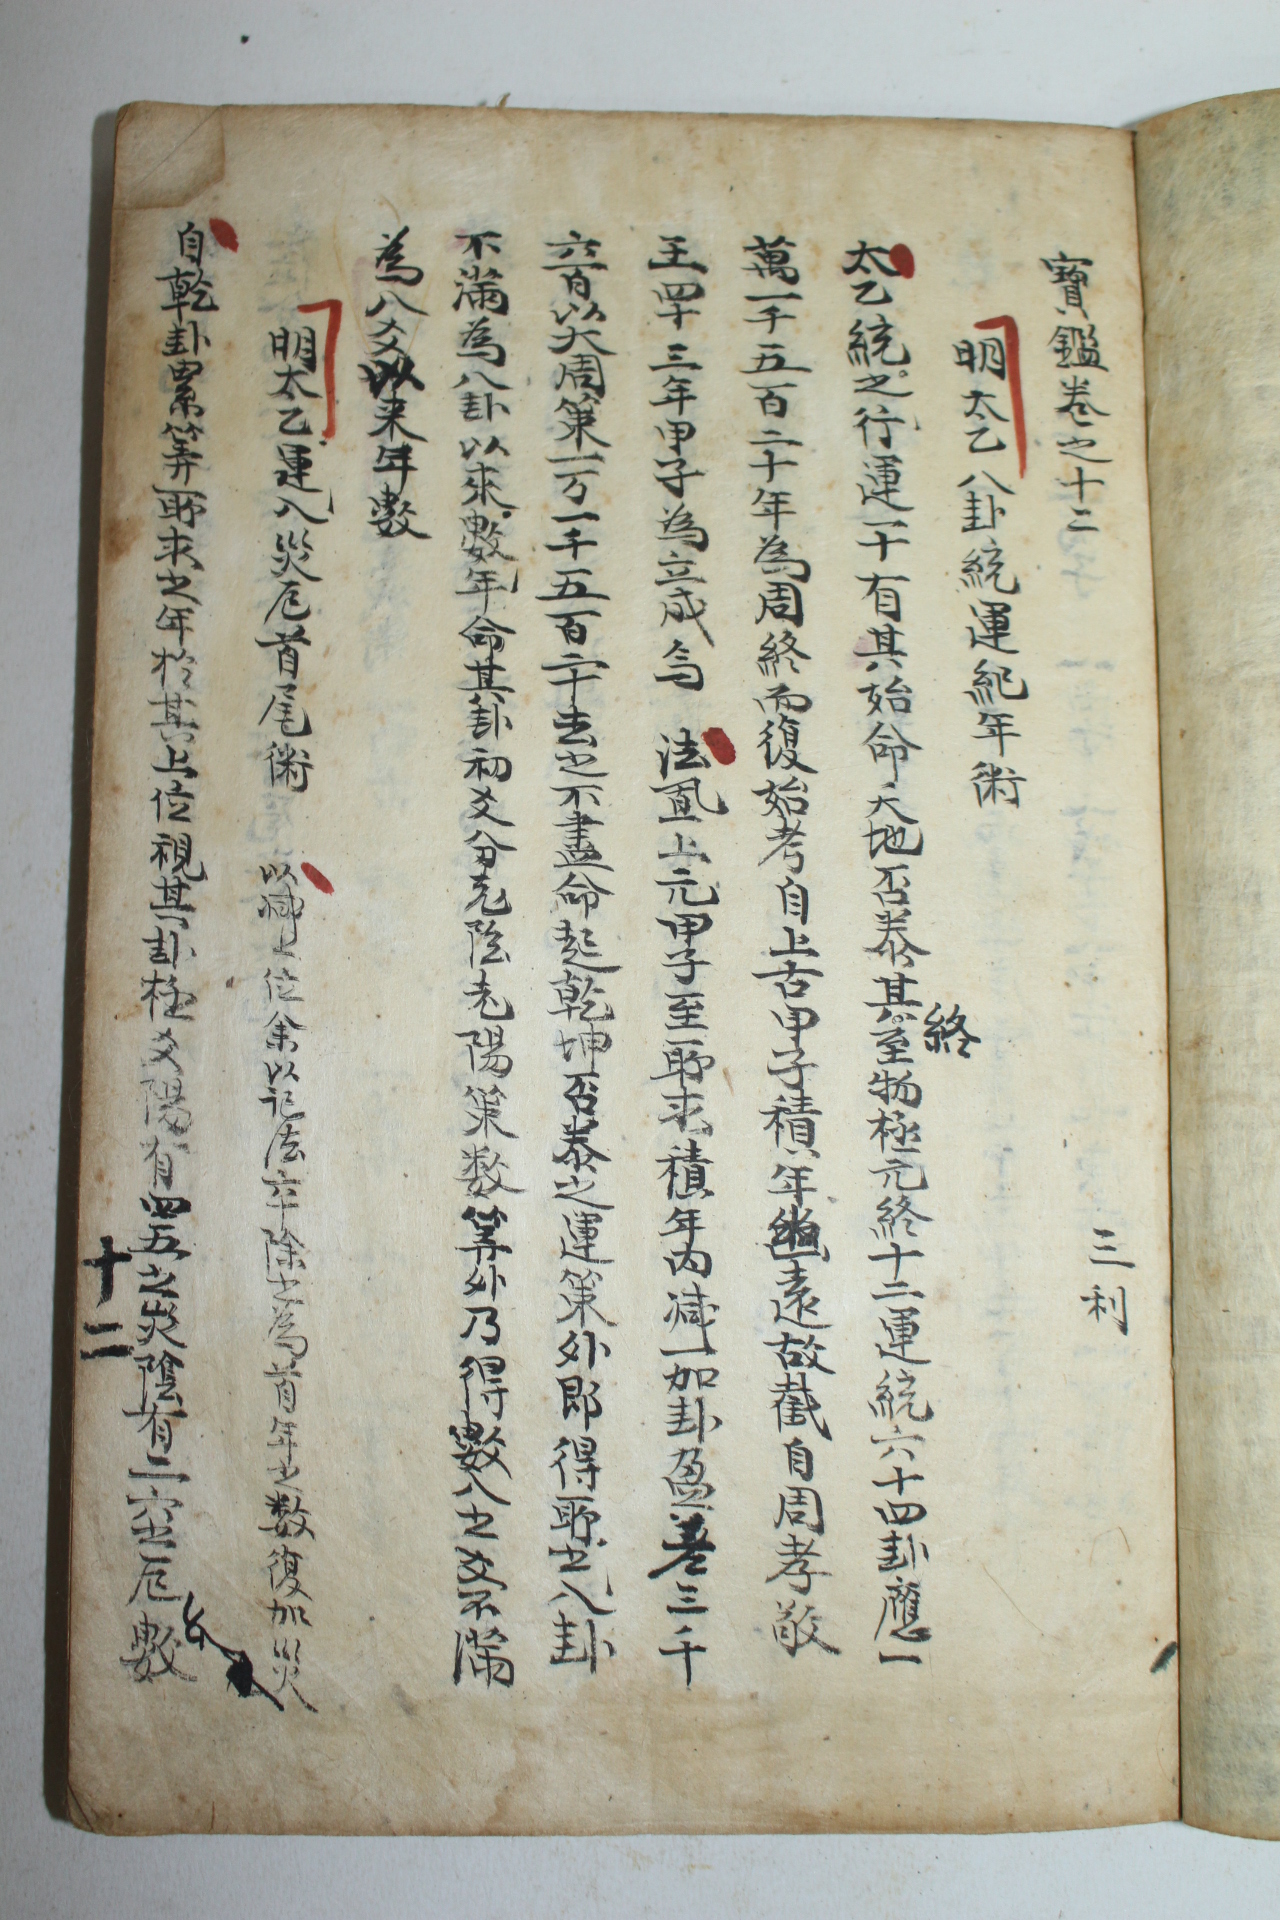 寶鑑卷之十二
三利
明太乙八卦統運紀年術
太乙統之行運一十有其始命天地否泰其至物極元終十二運統六十四卦應一
終
萬一千五百二十年為周終而復始考自上古甲子積年遠故截自周孝敬
王四十三年甲子為立成焉 法置上元甲子至所求積年內減一加卦盈差三千
六百以大周策一万一千五百二十去之不盡命起乾坤否泰之運策外即得所出八卦
不滿為八卦以來數年命其卦初爻分老陰老陽策數筭外乃得數八之爻不滿
為八爻以来年數
明太乙運入災厄首尾術 以减上位余以記法六十除之為首年之数復加災
自乾卦累筭所求之年於其上位視其卦極爻陽有四五之災陰有二六之厄數
十二